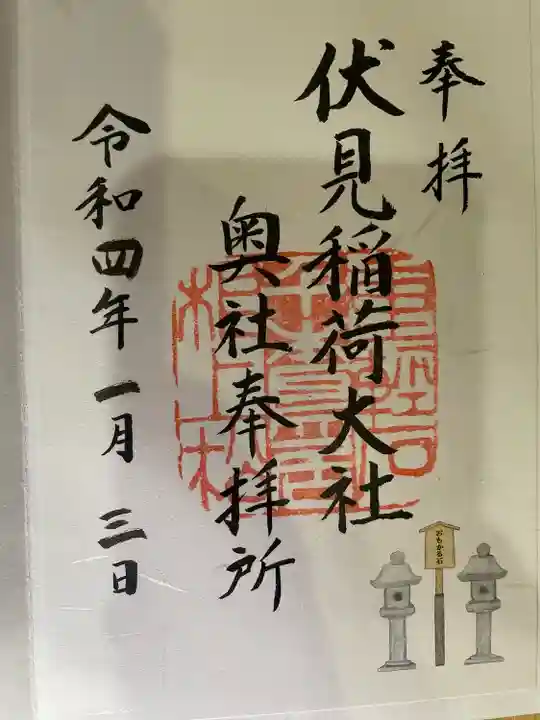 奉拝
伏見稲荷大社
奥社奉拝所
令和四年一月三日
おもかる石